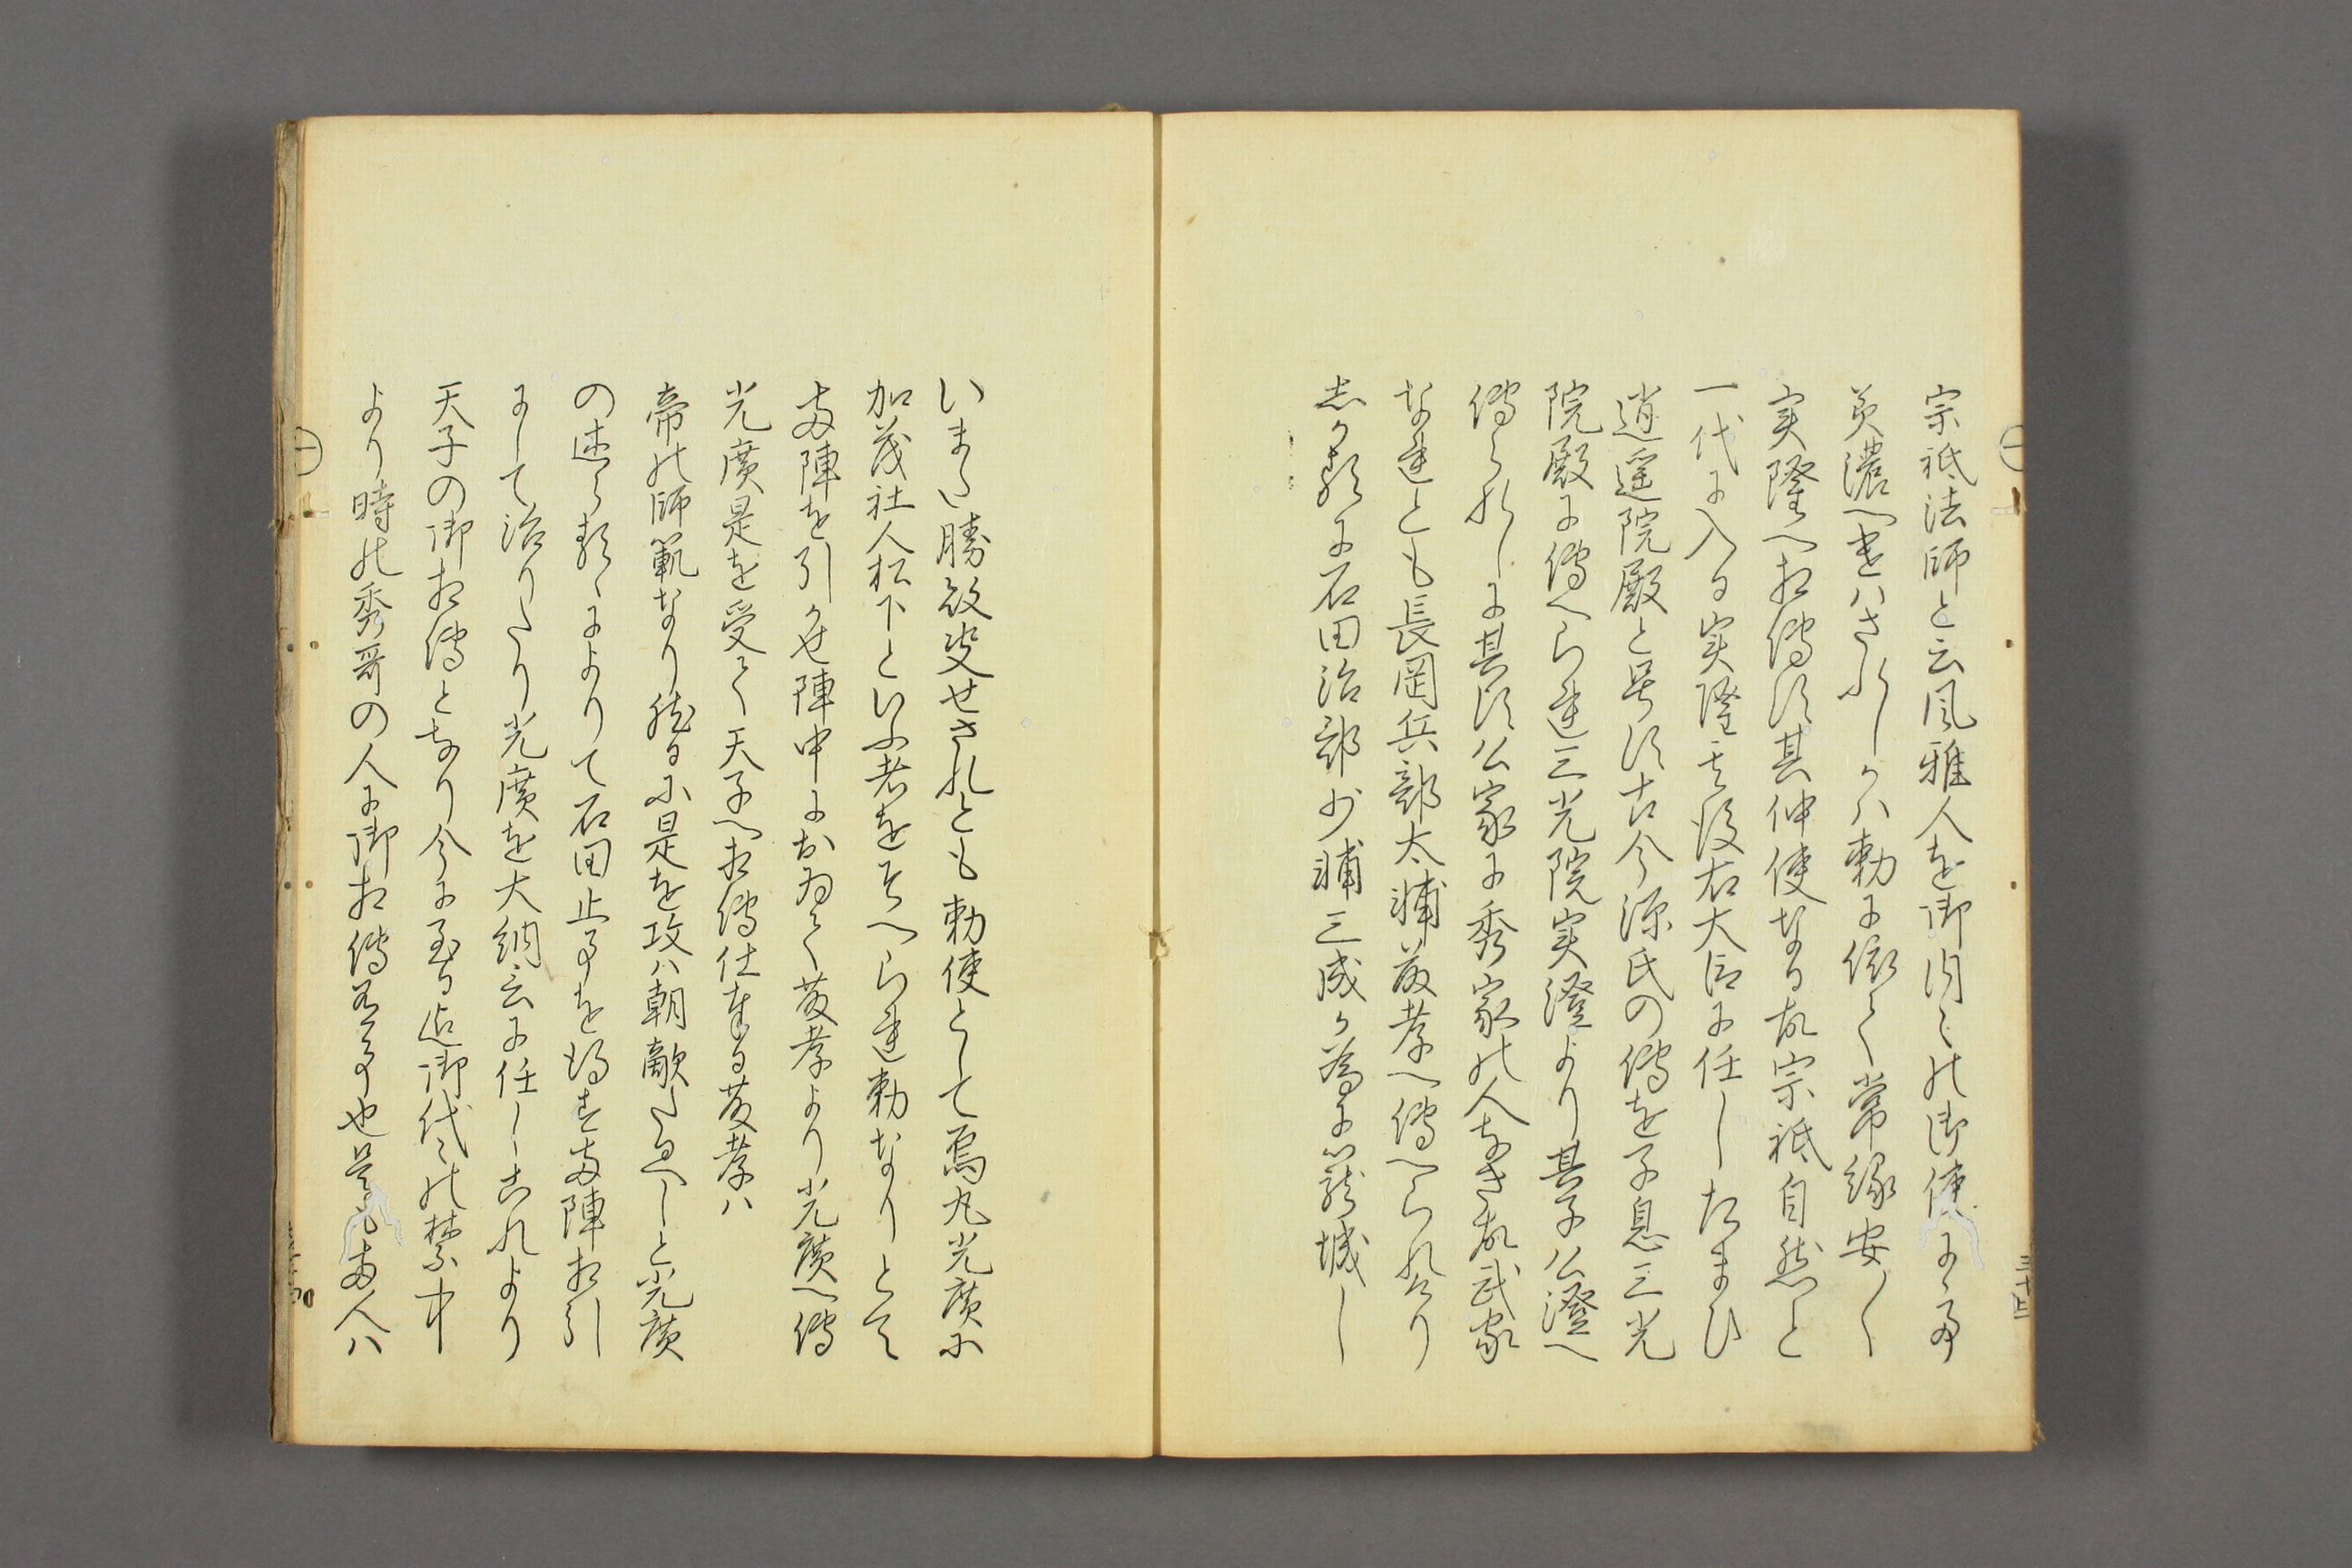 宗祇法師と云風雅人を御内々の御使にて
美濃へ遣ハされしかハ勅に依て常縁安〱
実隆へ相傳す其仲使なる故宗祇自然と
一代に入る実隆其後右大臣に任したまひ
逍遥院殿と号す古今源氏の傳を子息三光
院殿に傳へらる三光院実澄より其子公澄へ
傳られしに其頃公家に秀家の人なき故武家
なれとも長岡兵部太輔藤孝へ傳へられけり
しかるに石田治部少輔三成か為に籠城し
いまた勝敗決せされとも勅使として烏丸光廣に
加茂社人松下といふ者をそへられ勅なりとて
両陣を引かせ陣中におゐて藤孝より光廣へ傳
光廣是を受て天子へ相傳仕奉る藤孝ハ
帝の師範なり然るに是を攻ハ朝敵たるへしと光廣
の述らるゝによりて石田止事を得す両陣相引
にして治りたり光廣を大納言に任しこれより
天子の御相傳となり今に至る迄御代々の禁中
より時の秀哥の人に御相傳有事也是両人ハ
三十七